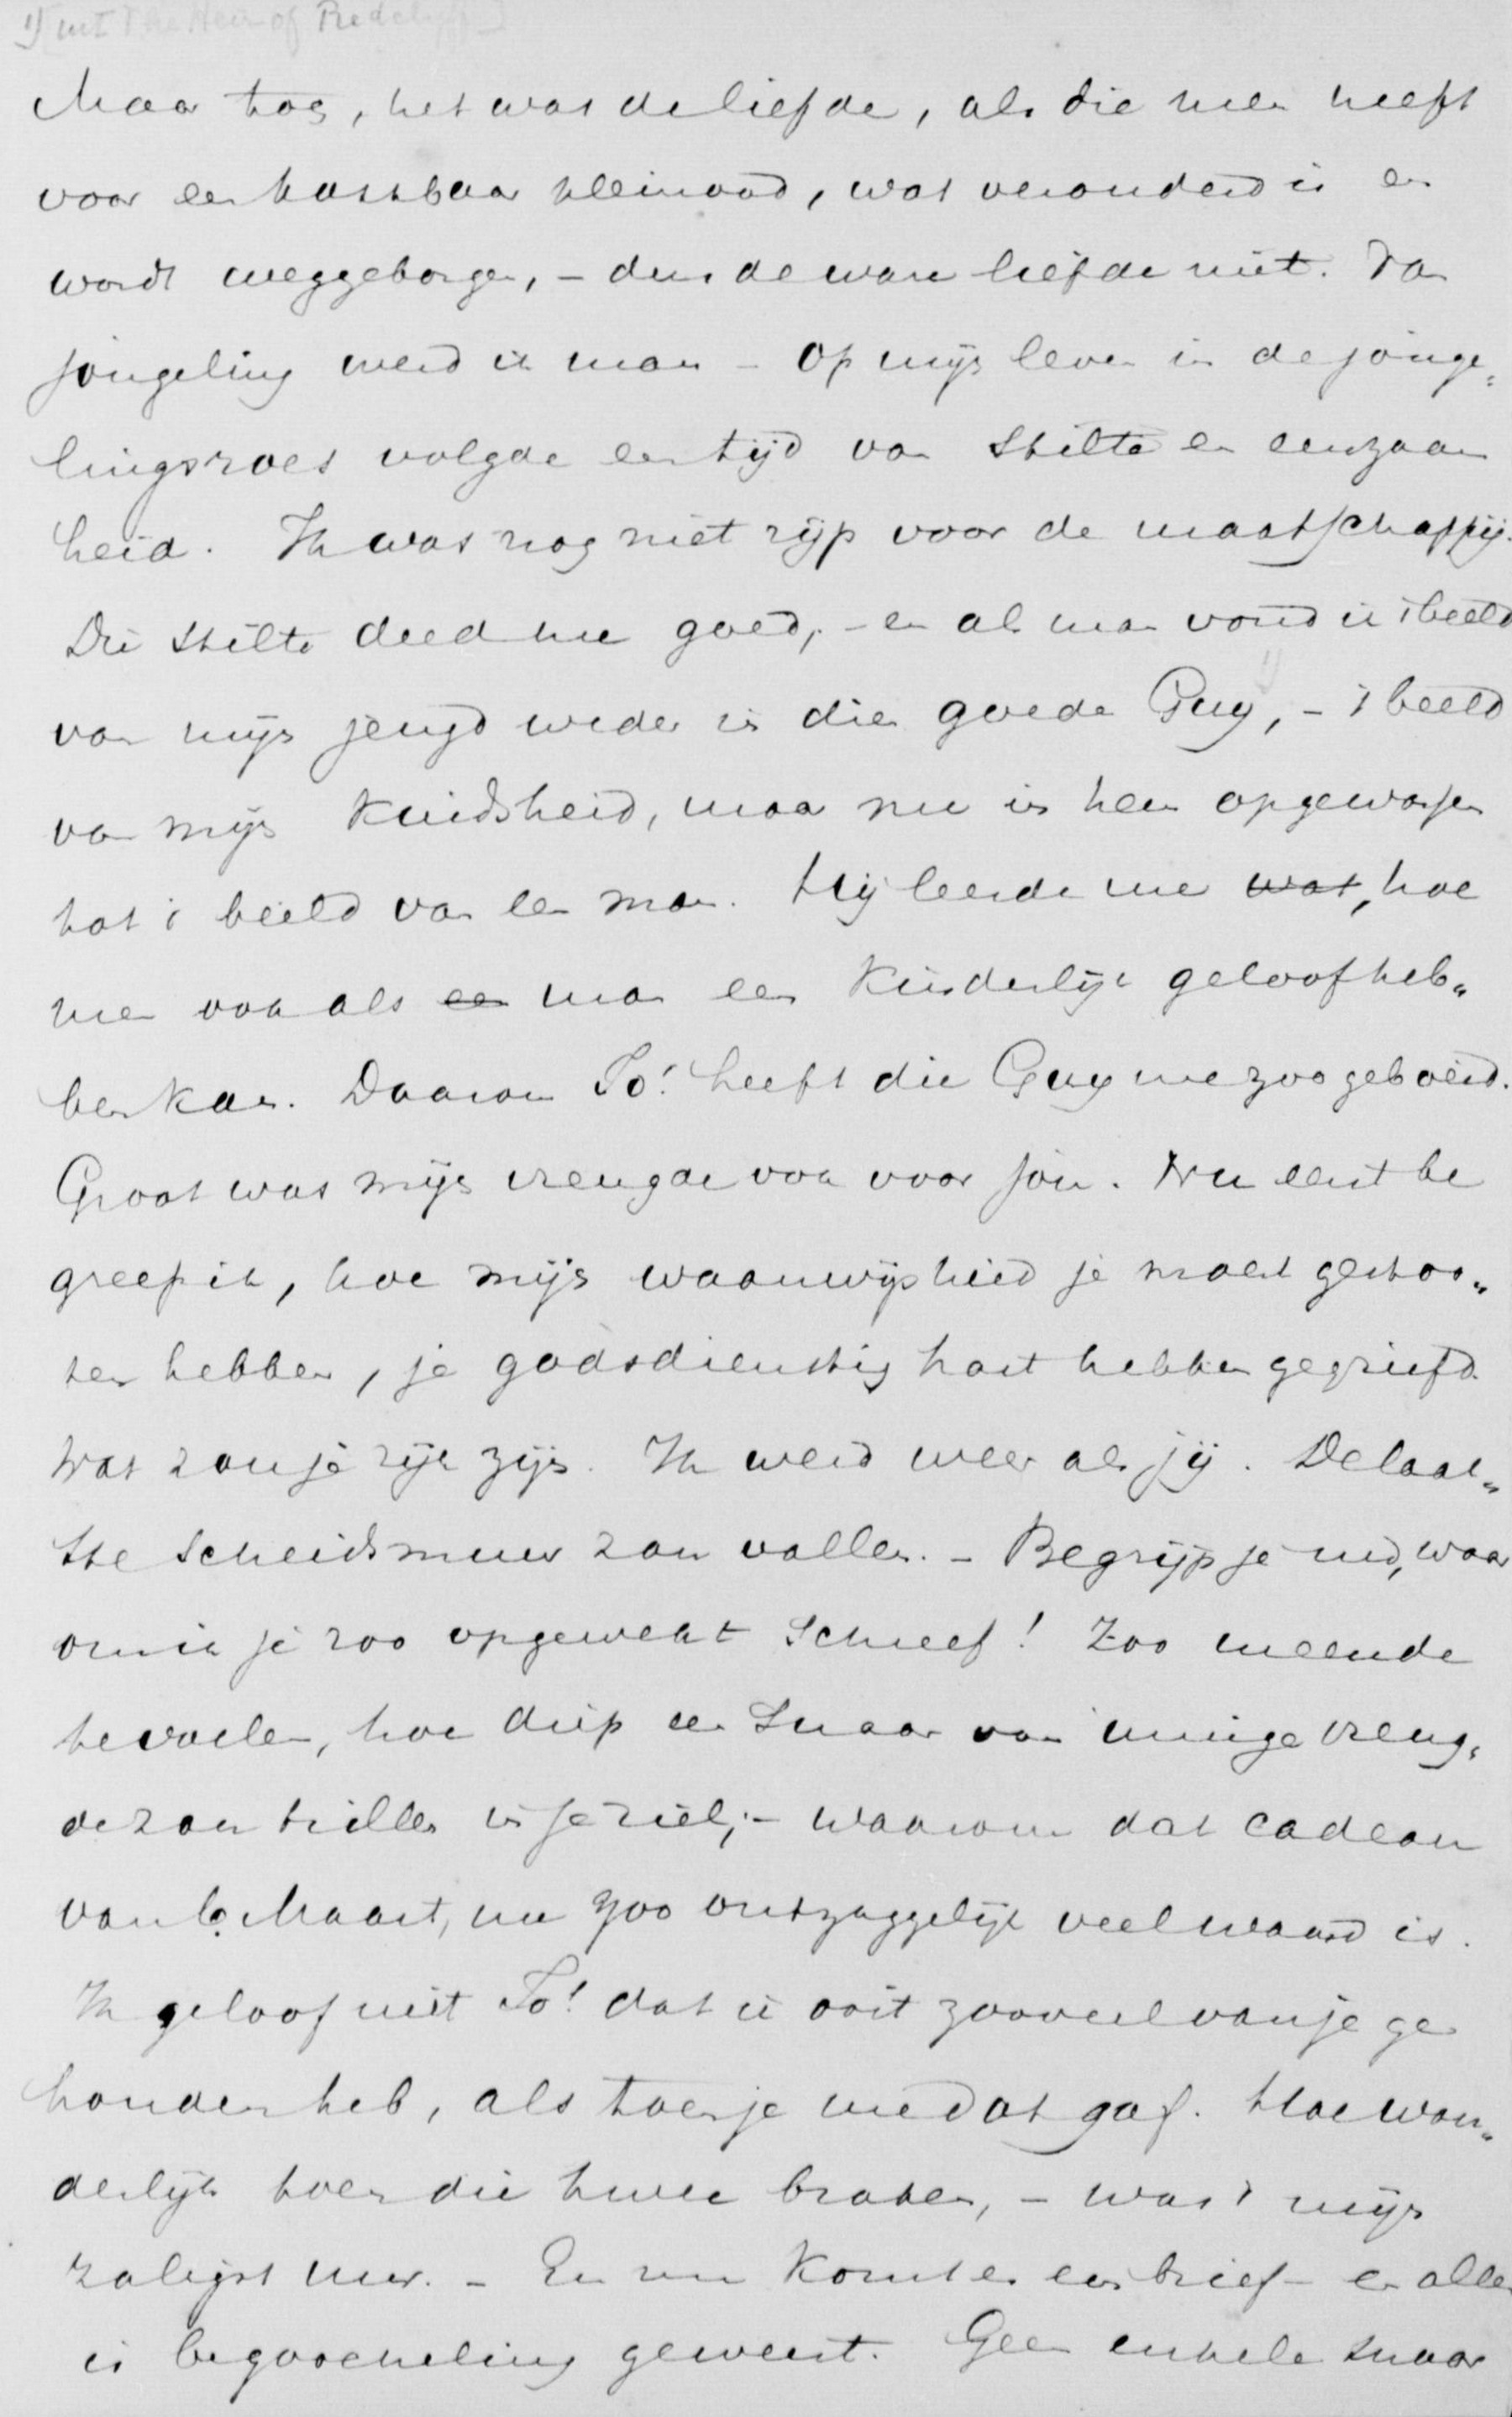 1) uit The Heir of Redclyffe
Maar toch, het was de liefde, als die men heeft
voor een kostbaar kleinood, wat verouderd is en
wordt weggeborgen, – dus de ware liefde niet. Van
jongeling werd ik man – Op mijn leven in de jonge„
lingsroes volgde een tijd van stilte en eenzaam
heid. Ik was nog niet rijp voor de maatschappij.
Die stilte deed me goed, – en als man vond ik 't beeld
van mijn jeugd weder in dien goede Guy, 1) – 't beeld
van mijn Kindsheid, maar nu in hem opgewassen
tot 't beeld van een man. Hij leerde me wat, hoe
men ook als een man een Kinderlijk geloof heb„
ben kan. Daarom To! heeft die Guy me zoo geboeid.
Groot was mijn vreugde ook voor jou. Nu eerst be
greep ik, hoe mijn waanwijsheid je moest gestoo„
ten hebben, je godsdienstig hart hebben gegriefd.
Wat zou je rijk zijn. Ik werd weer als jij. De laat„
ste scheidsmuur zou vallen. – Begrijp je nu, waar
om ik je zoo opgewekt schreef! Zoo meende
te voelen, hoe diep een snaar van innige vreug„
de zou trillen in je ziel; – waarom dat cadeau
van 6 Maart, me zoo ontzaggelijk veel waard is.
Ik geloof niet To! dat ik ooit zooveel van je ge
houden heb, als toen je me dat gaf. Hoe won„
derlijk toen die twee braken, – was 't mijn
zaligst uur. – En nu komt er een brief – en alles
is begoocheling geweest. Geen enkele snaar